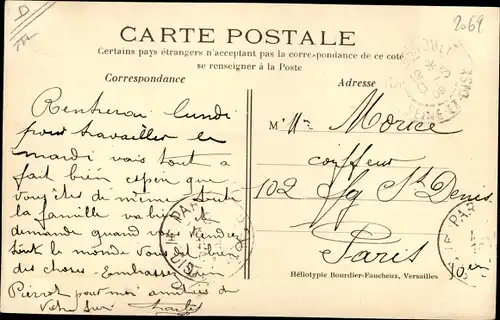 2069
CARTE POSTALE
Certains pays étrangers n'acceptant pas la correspondance de ce coté
se renseigner à la Poste
Correspondance
Adresse
Rentrerai lundi
pour travailler le
mardi vais tout a
fait bien espère que
vous êtes de même toute
la famille va bien et
demande quand vous viendrez
tout le monde vous dit bien
des choses - Embrassez bien
Pierrot pour moi amitiés de
Votre
M Morice
coiffeur
102 fg St Denis
Paris
10
PARIS
SEINE-ET-OISE
Héliotypie Bourdier-Faucheux, Versailles